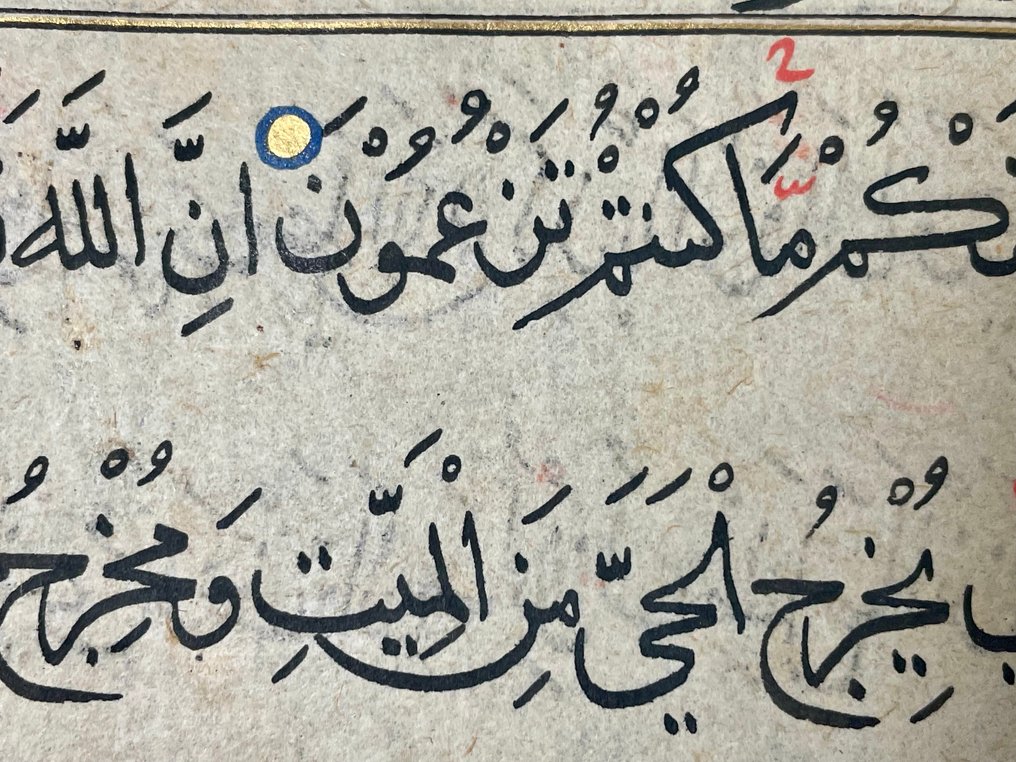 كُمْ مَّا كُنْتُمْ تَزْعُمُوْنَ اِنَّ اللّٰهَ
يُخْرِجُ الْحَيَّ مِنَ الْمَيِّتِ وَمُخْرِجُ